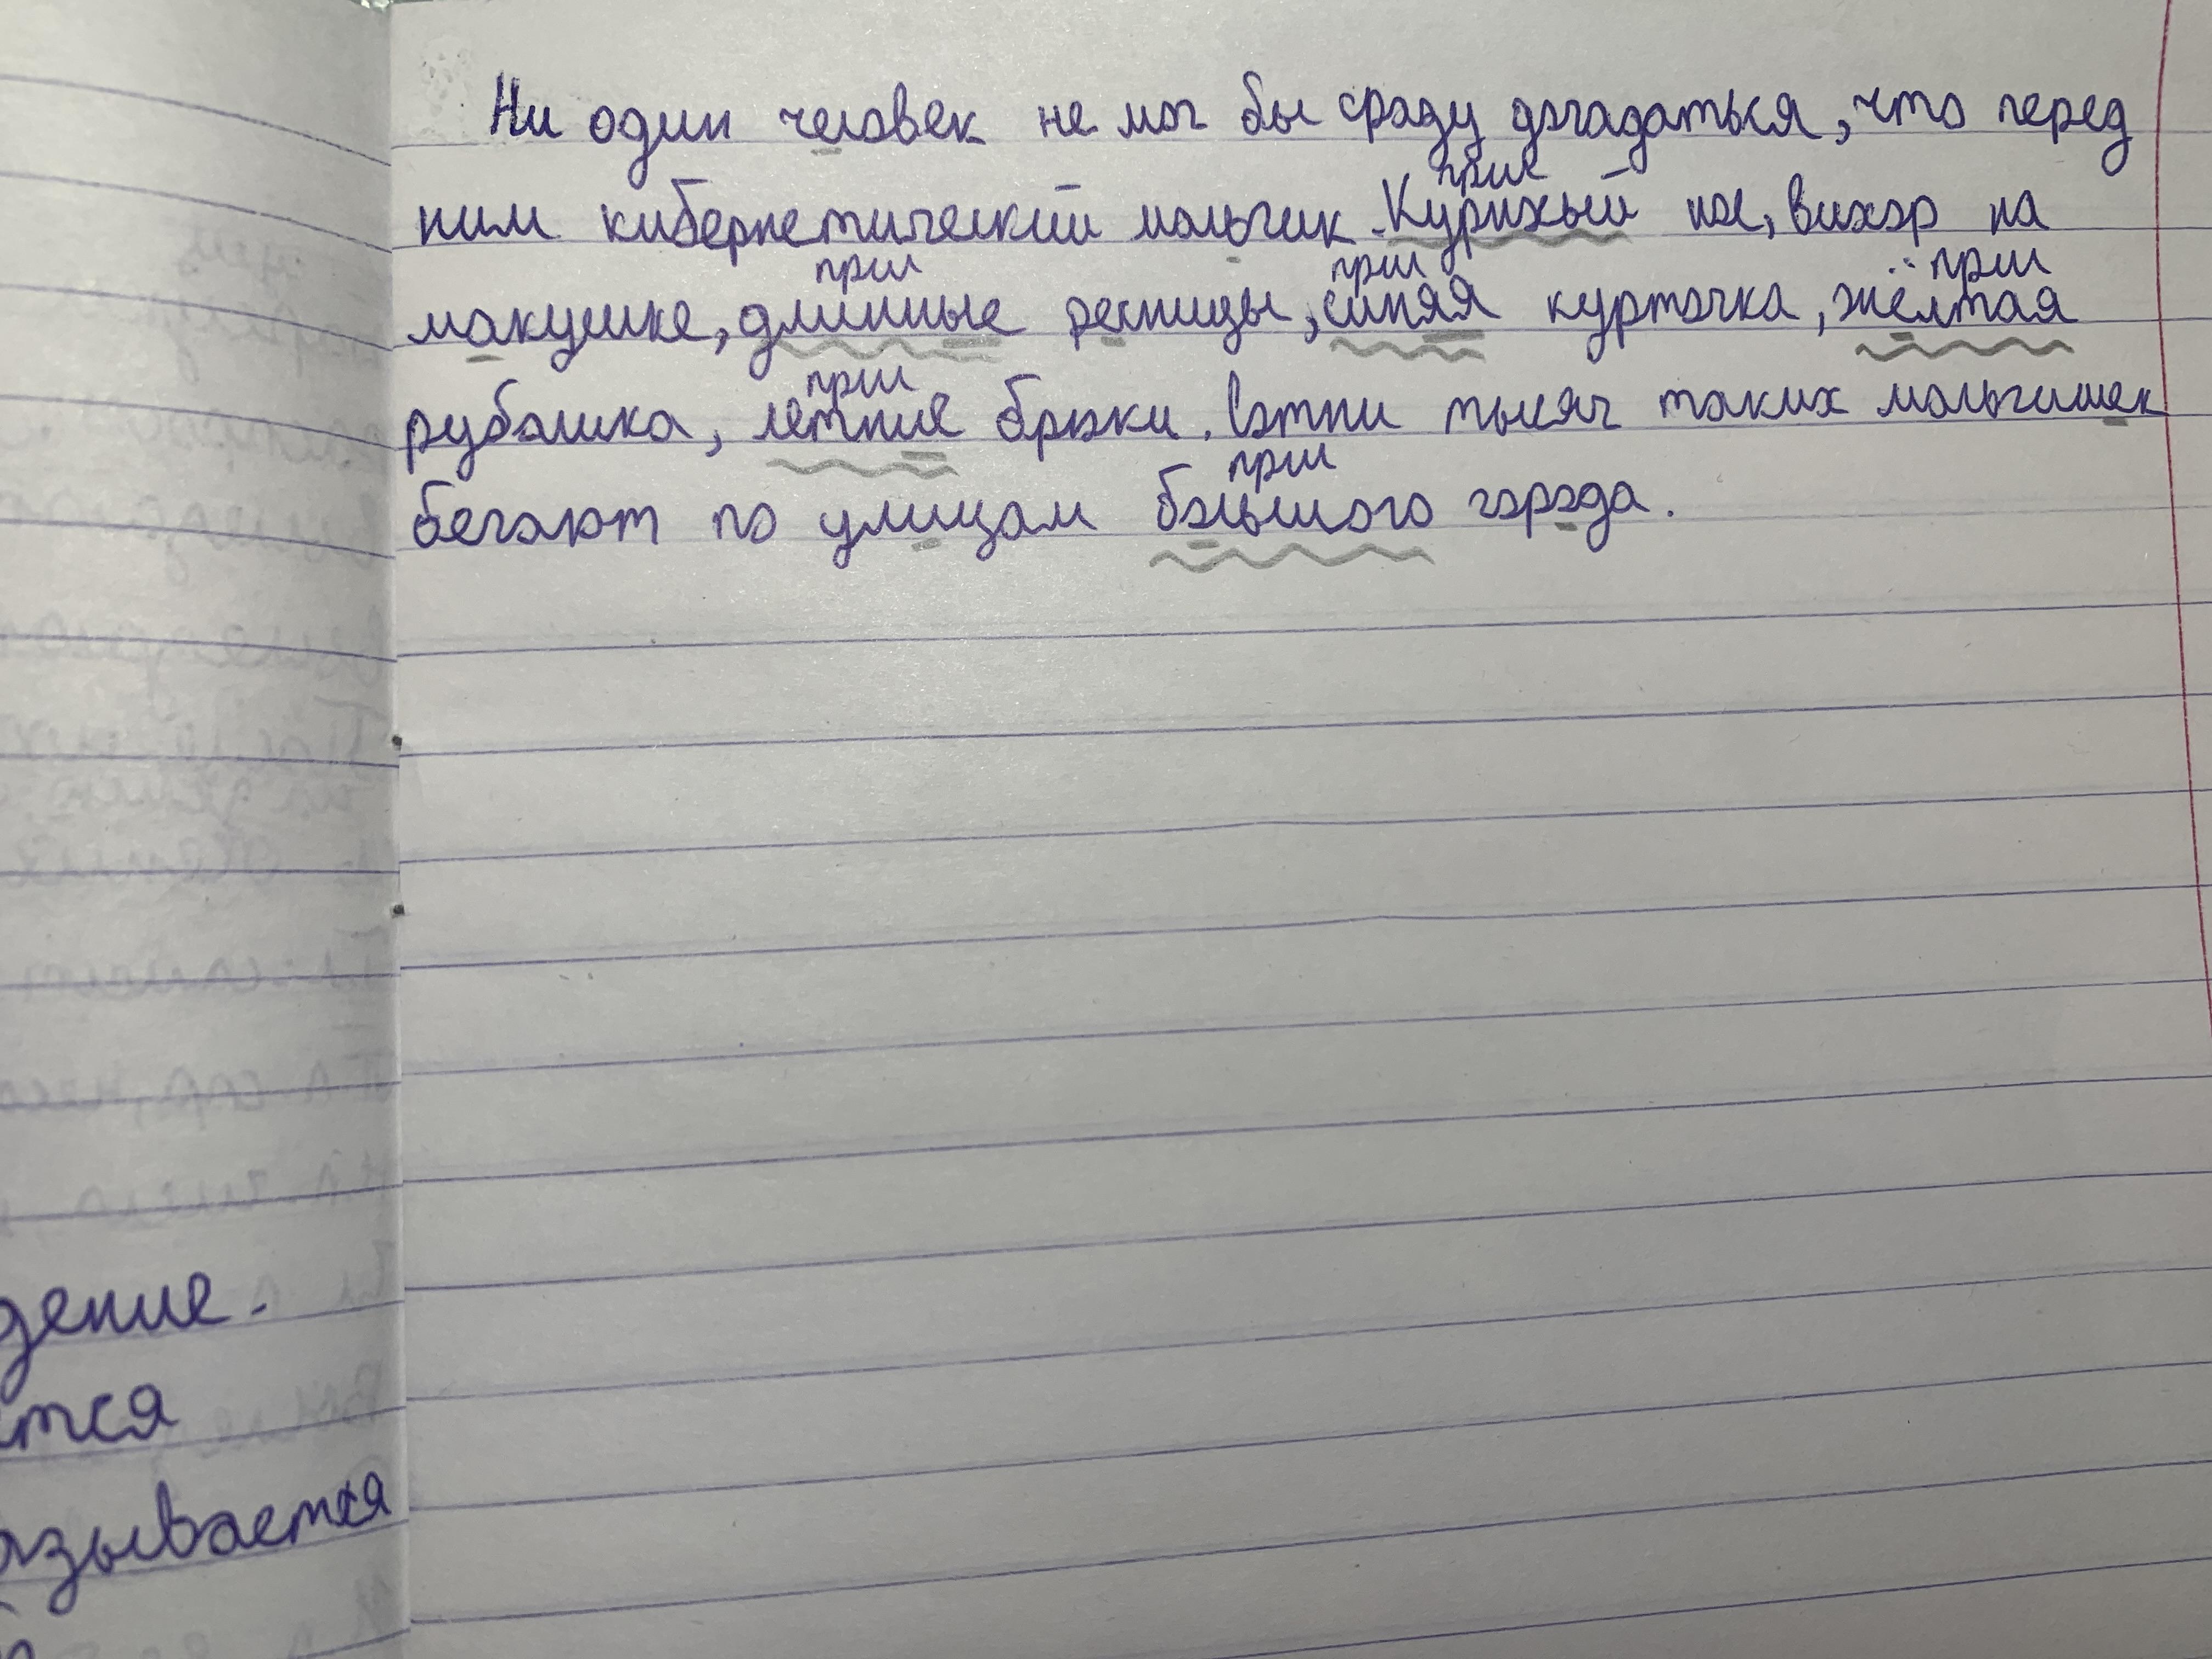 Ни один человек не мог бы сразу догадаться, что перед
прил
ним кибернетический мальчик. Курнхый нос, вихор на
прил прил прил
макушке, длинные ресницы, синяя курточка, жёлтая
прил
рубашка, летние брюки. Сотни тысяч таких мальчишек
прил
бегают по улицам большого города.
дение.
ется
азывается